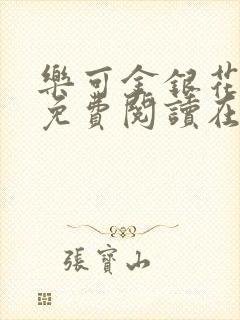 樂可金銀花
免費閱讀在
張寶山